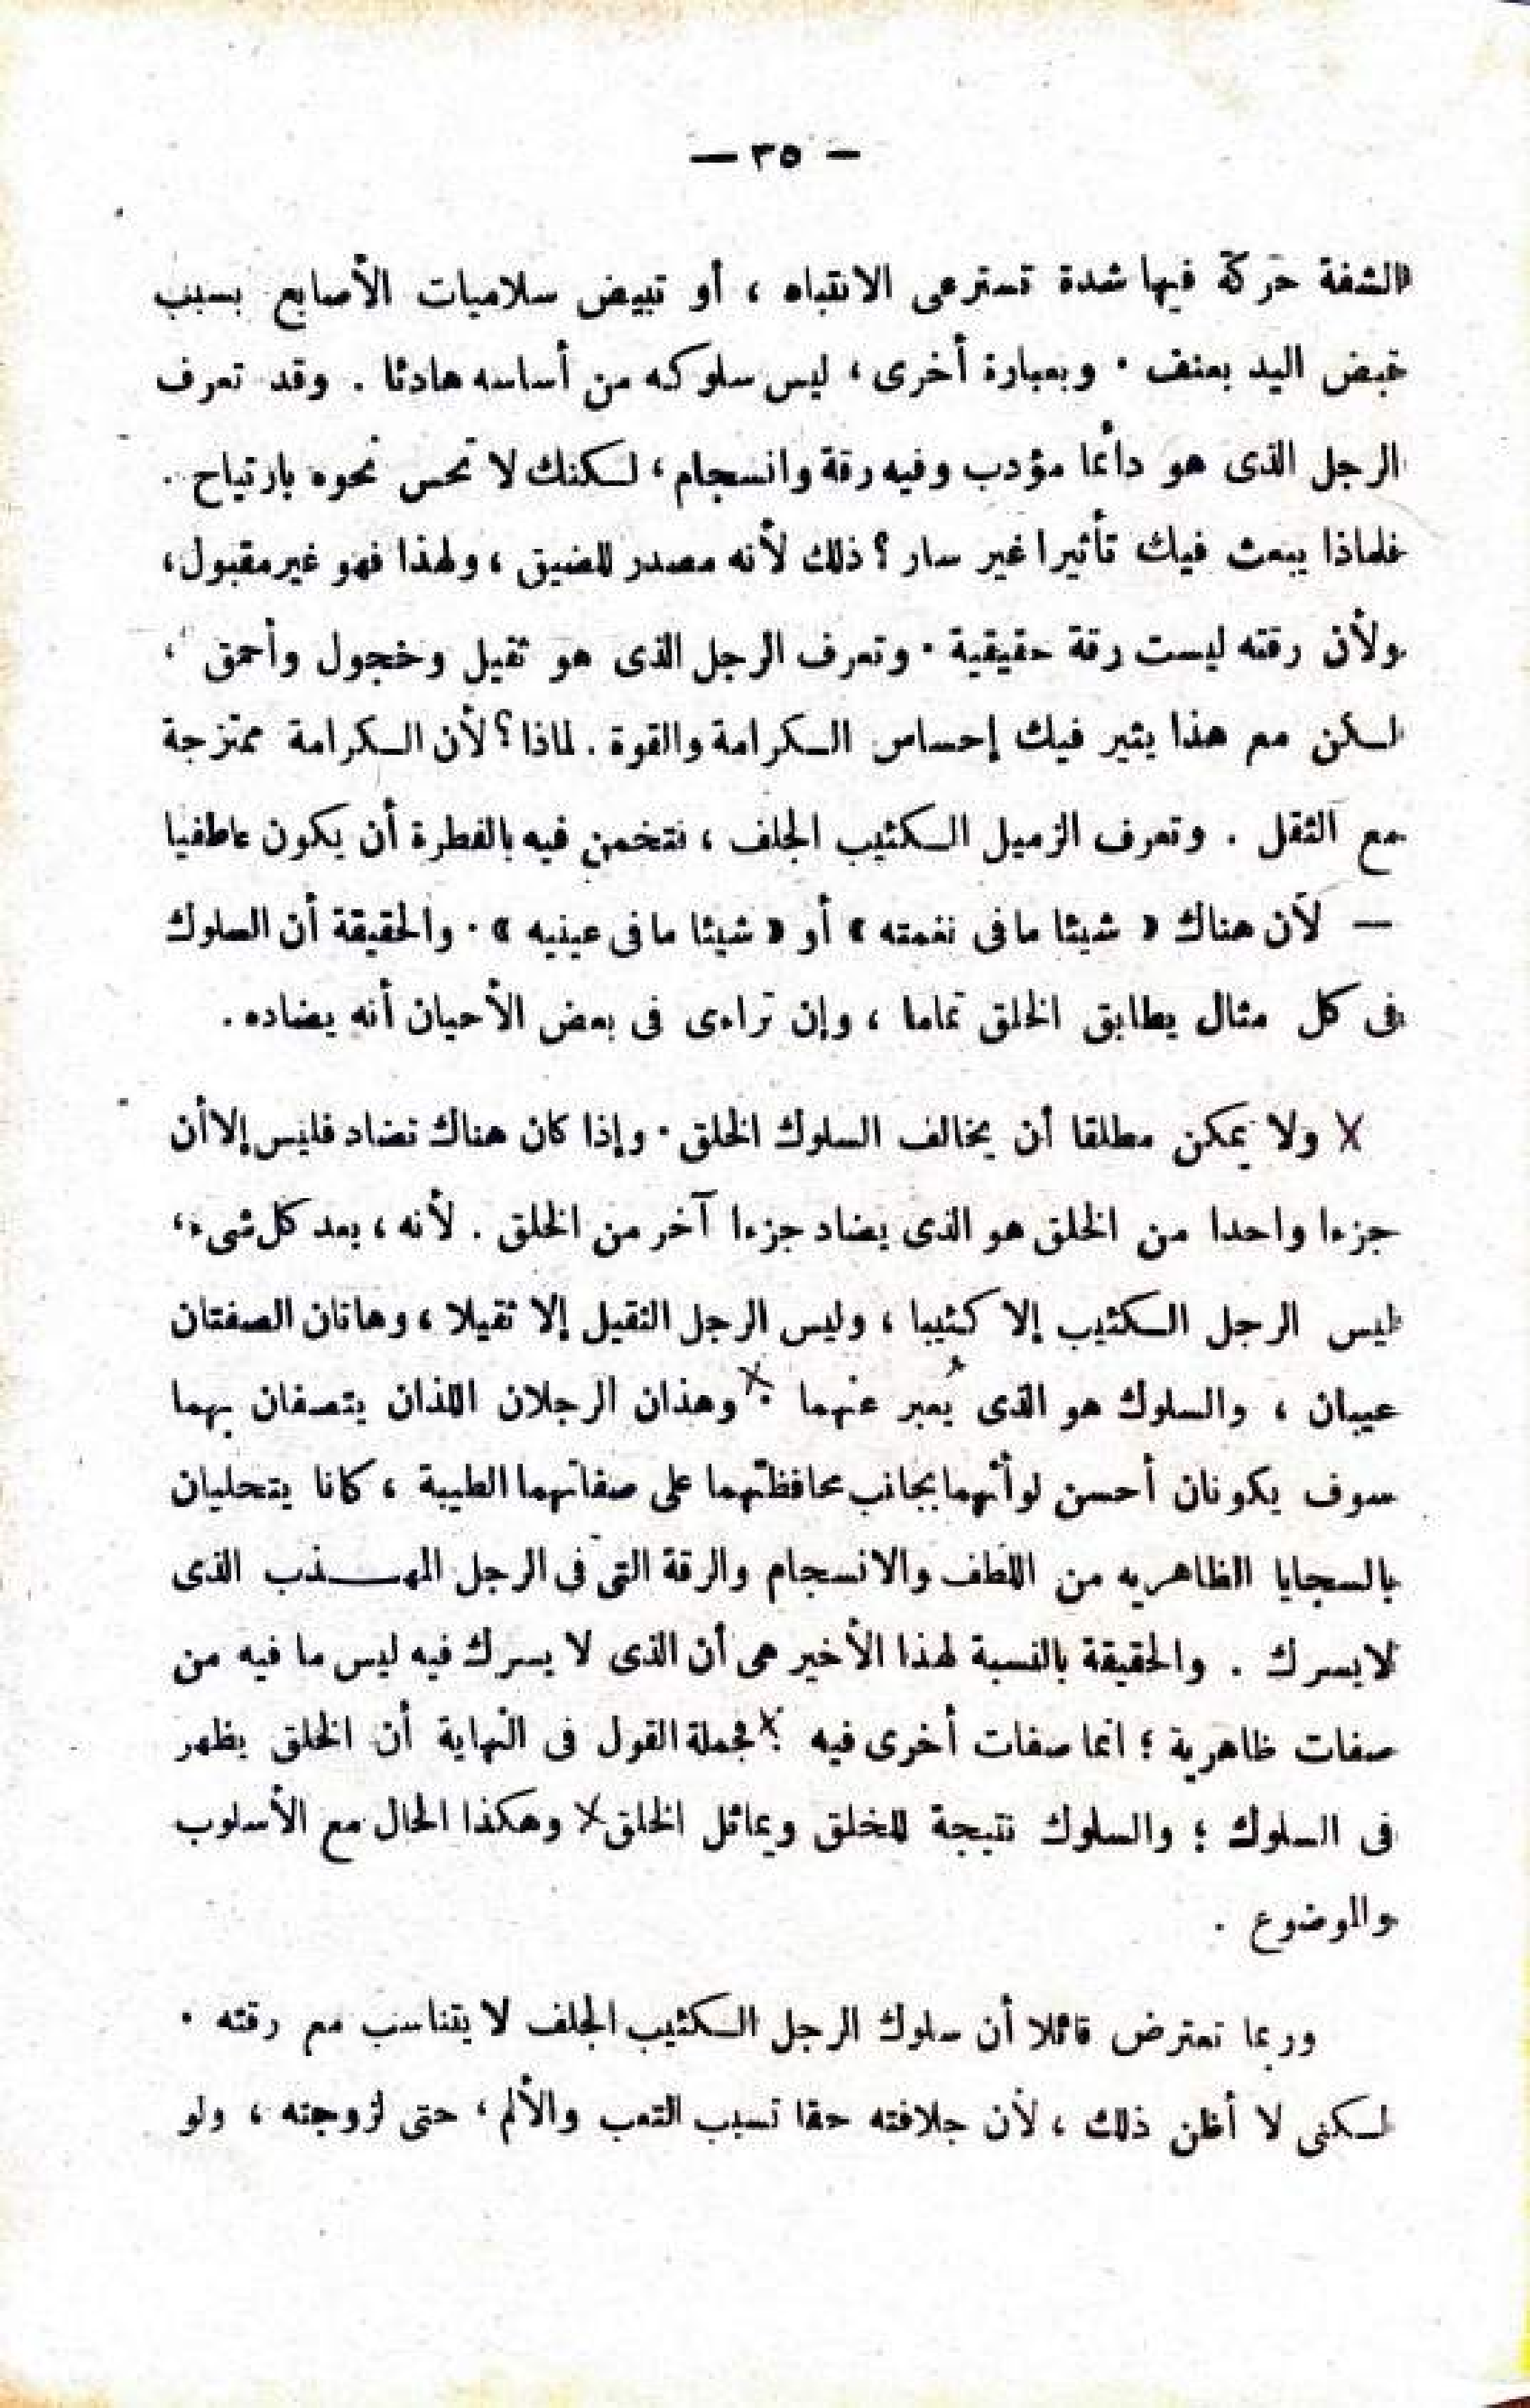 — ٣٥ —
الشفة حركة فيها شدة تسترعى الانتباه ، أو تبيض سلاميات الأصابع بسبب
قبض اليد بعنف . وبعبارة أخرى ، ليس سلوكه من أساسه هادئا . وقد تعرف
الرجل الذى هو دائما مؤدب وفيه رقة وانسجام ، لكنك لا تحس نحوه بارتياح .
فلماذا يبعث فيك تأثيرا غير سار ؟ ذلك لأنه مصدر للضيق ، ولهذا فهو غير مقبول ،
ولأن رقته ليست رقة حقيقية . وتعرف الرجل الذى هو ثقيل وخجول وأحمق ،
لكن مع هذا يثير فيك إحساس الكرامة والقوة . لماذا ؟ لأن الكرامة ممتزجة
مع الثقل . وتعرف الزميل الكئيب الجلف ، فتخمن فيه بالفطرة أن يكون عاطفيا
— لأن هناك « شيئا ما فى نغمته » أو « شيئا ما فى عينيه » . والحقيقة أن السلوك
فى كل مثال يطابق الخلق تماما ، وإن تراءى فى بعض الأحيان أنه يضاده .
ولا يمكن مطلقا أن يخالف السلوك الخلق . وإذا كان هناك تضاد فليس إلا أن
جزءا واحدا من الخلق هو الذى يضاد جزءا آخر من الخلق . لأنه ، بعد كل شىء ،
ليس الرجل الكئيب إلا كئيبا ، وليس الرجل الثقيل إلا ثقيلا ، وهاتان الصفتان
عيبان ، والسلوك هو الذى يُعبر عنهما . وهذان الرجلان اللذان يتصفان بهما
سوف يكونان أحسن لو أنهما بجانب محافظتهما على صفاتهما الطيبة ، كانا يتحليان
بالسجايا الظاهريه من اللطف والانسجام والرقة التى فى الرجل المهـذب الذى
لايسرك . والحقيقة بالنسبة لهذا الأخير هى أن الذى لا يسرك فيه ليس ما فيه من
صفات ظاهرية ؛ انما صفات أخرى فيه . فجملة القول فى النهاية أن الخلق يظهر
فى السلوك ؛ والسلوك نتيجة للخلق ويماثل الخلق وهكذا الحال مع الأسلوب
والموضوع .
وربما تعترض قائلا أن سلوك الرجل الكئيب الجلف لا يتناسب مع رقته .
لكنى لا أظن ذلك ، لأن جلافته حقا تسبب التعب والألم ، حتى لزوجته ، ولو